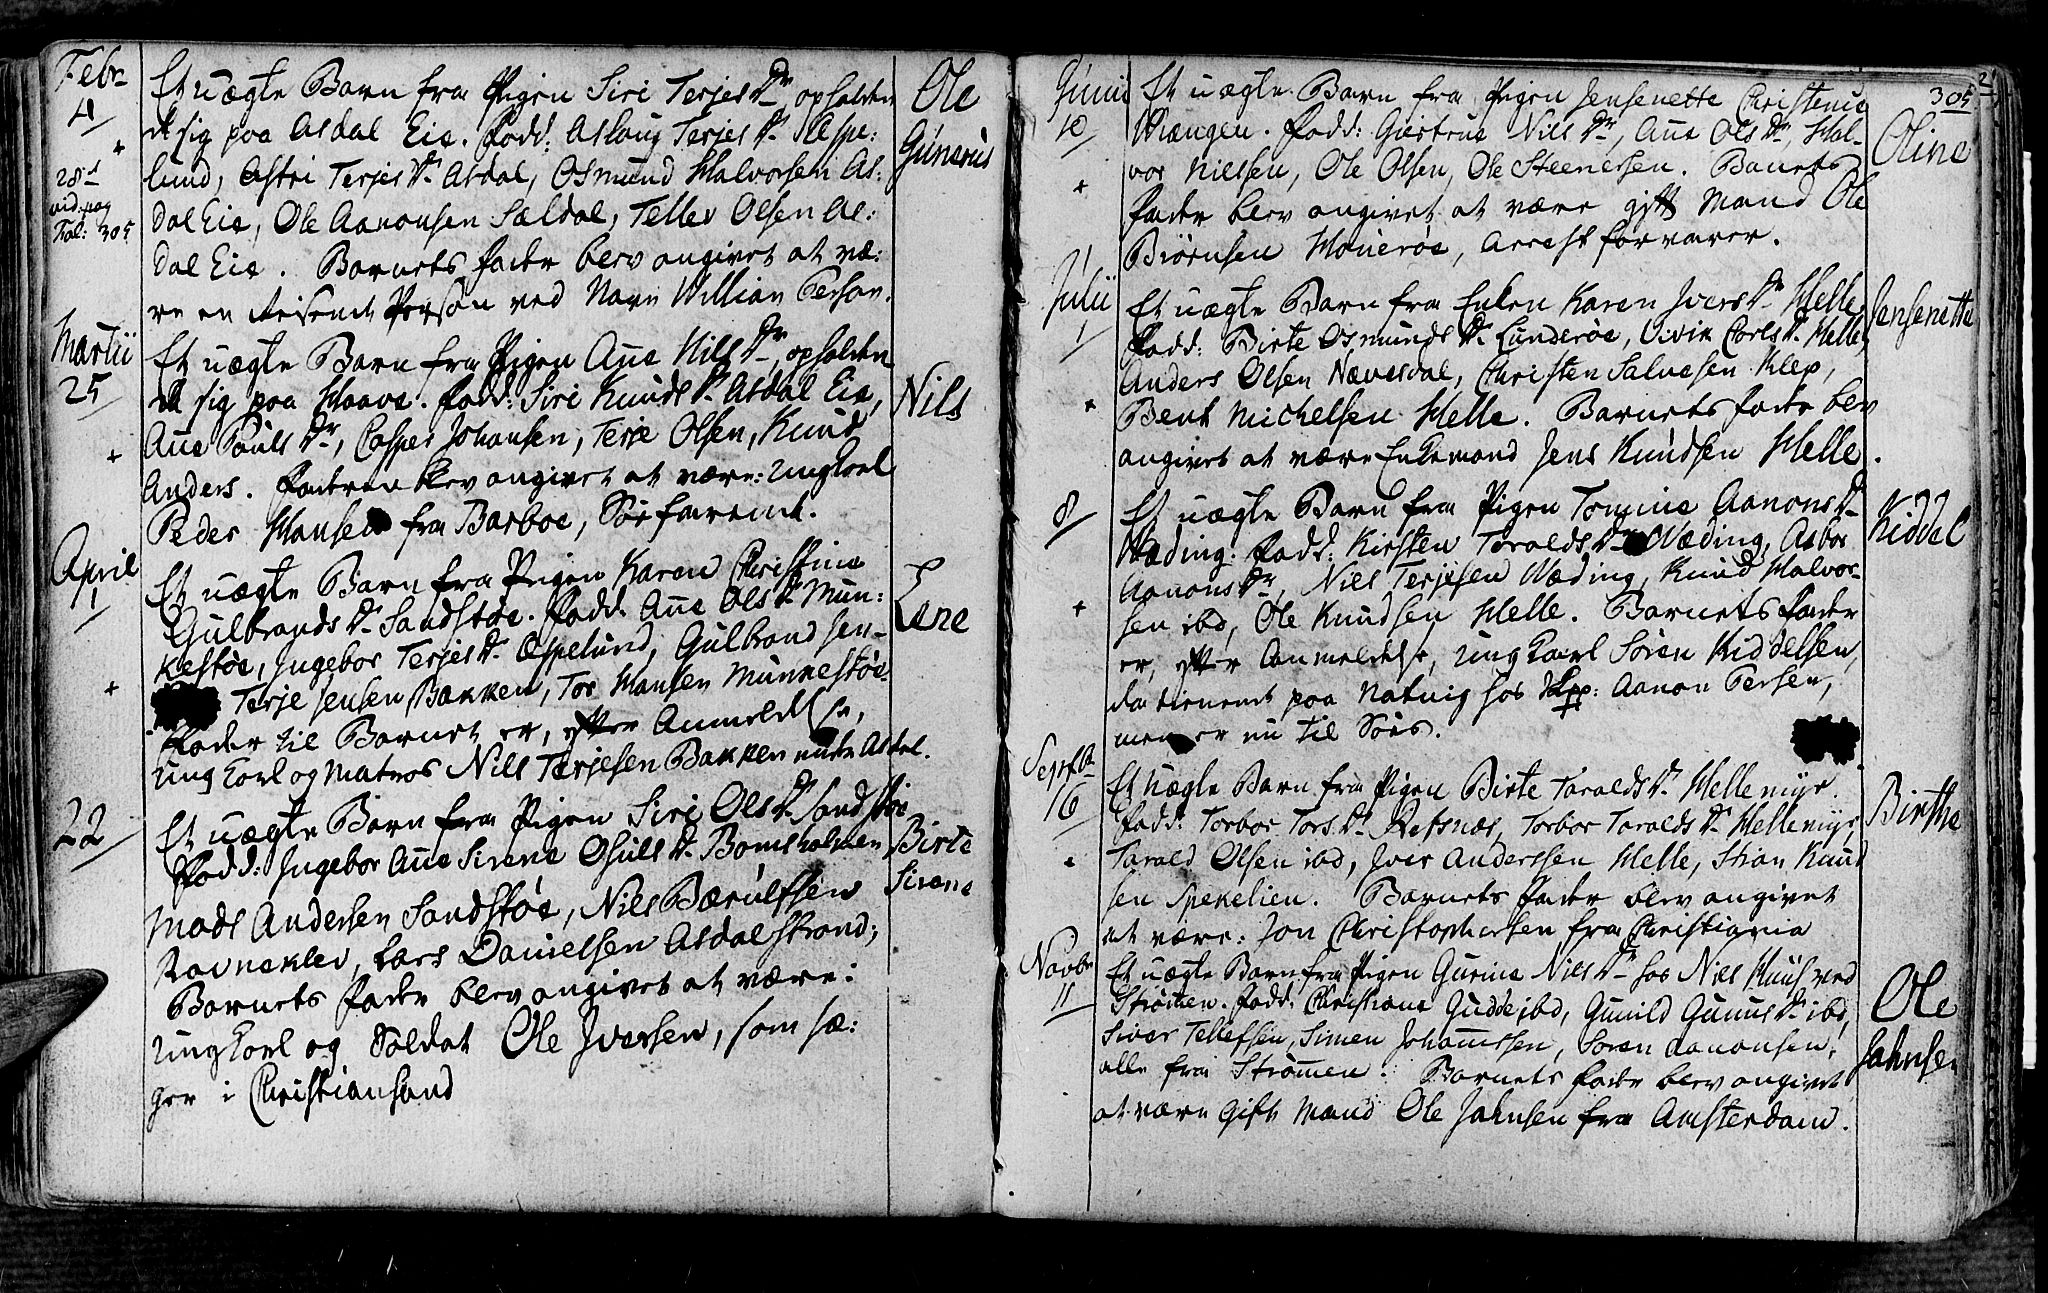 Febr
4
28de
vid. pag
Fol: 305
Et uægte Barn fra Pigen Siri Terjes Dr, opholden
de sig paa Asdal Eie. Fadd: Aslaug Terjes Dr Espe:
lund, Astri Terjes Dr Asdal, Osmund Halvorsen As:
dal Eie, Ole Aanonsen Sældal, Tellev Olsen As:
dal Eie. Barnets Fader blev angivet at væ:
re en Reisende Person ved Navn Willian Person.
Ole
Gunerius
Martii
25
Et uægte Barn fra Pigen Ane Nils Dr, opholden
de sig paa Haave. Fadd: Siri Knuds Dr Asdal Eie,
Ane Pouls Dr, Casper Johansen, Terje Olsen, Knud
Anders. Faderen blev angivet at være: ungkarl
Peder Hansen fra Barboe, Søefarende.
Nils
April
1
Et uægte Barn fra Pigen Karen Christine
Gulbrands Dr Sandstøe. Fadd: Ane Ols Dr Mun:
kestøe, Ingebor Terjes Dr Espelund, Gulbrand Jen-
Terje Jensen Bakken, Tor Hansen Munkestøe.
Fader til Barnet er, efter Anmeldelse,
ungkarl og Matros Nils Terjesen Bakken under Asdal.
Lene
22
Et uægte Barn fra Pigen Siri Ols Dr Sandstøe
Fadd: Ingebor Ane Sirene Osuls Dr Bomsholmen
Mads Andersen Sandstøe, Nils Bærulfsen
Ravneklev, Lars Danielsen Asdalstrand;
Barnets Fader blev angivet at være:
ungkarl og Soldat Ole Iversen, som sæ:
ger i Christiansand
Birte
Sirene
305
Junii
10
Et uægte Barn fra Pigen Jensenette Christenia
Vrængen. Fadd: Giertrue Nils Dr, Ane Ols Dr, Hal-
vor Nielsen, Ole Olsen, Ole Steenersen. Barnets
Fader blev angivet at være gift Mand Ole
Biørnsen Hauerøe, Arrestforvarer.
Oline
Julii
1
Et uægte Barn fra Enken Karen Ivers Dr Helle,
Fadd: Birte Osmunds Dr Lunderøe, Vivik Carls Dr Helle,
Anders Olsen Nævesdal, Christen Salvesen Klep,
Bent Michelsen Helle. Barnets Fader blev
angivet at være Enkemand Jens Knudsen Helle.
Jensenette
8
Et uægte Barn fra Pigen Tomine Aanons Dr
Væding. Fadd: Kirsten Toralds Dr Væding, Asbor
Aanons Dr, Niels Terjesen Væding, Knud Halvor-
sen ibd, Ole Knudsen Helle. Barnets Fader
er, efter Anmeldelse, ungkarl Søren Kiddelsen,
da tienende paa Natvig hos Aanon Persen,
men er nu til Søes.
Kiddel
Septbr
16
Et uægte Barn fra Pigen Birte Taralds Dr Hellemyr.
Fadd: Torbor Tors Dr Refsnæs, Torbor Taralds Dr Hellemyr
Tarald Olsen ibd, Iver Anderssen Helle, Stian Knud
sen Spekelien. Barnets Fader blev angivet
at være: Jon Christophersen fra Christiania
Birthe
Novbr
11
Et uægte Barn fra Pigen Gurine Nils Dr hos Nils Huus ved
Strømen. Fadd: Christiane Gudde ibd, Gunild Gunus Dr ibd,
Siver Tellefsen, Simen Johannessen, Søren Aanonsen,
alle fra Strømen. Barnets Fader blev angivet
at være Gift Mand Ole Jahnsen fra Amsterdam.
Ole
Jahnsen